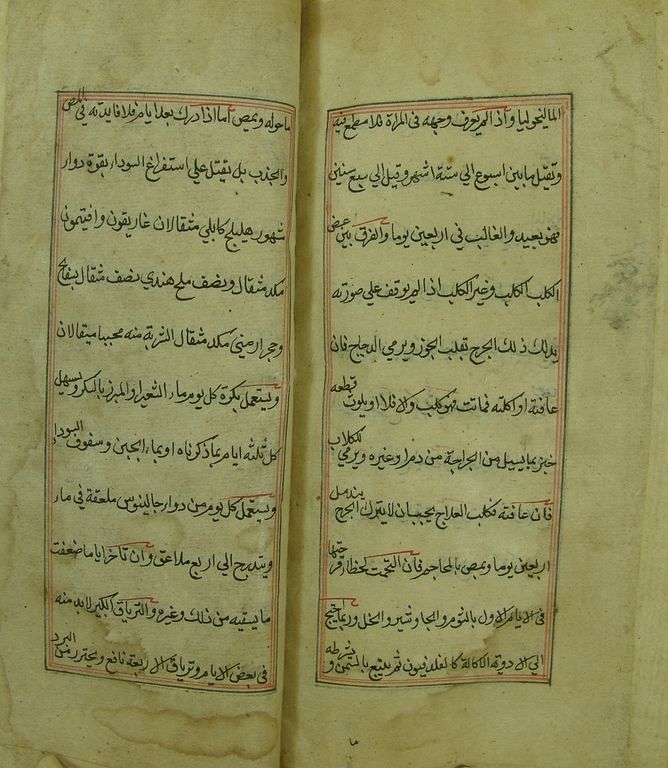 الماليخوليا واذا لم يعرف وجهه في المراة فلا مطمع فيه
وتقتل ما بين اسبوع الي ستة اشهر وقيل الي سبع سنين
فهو بعيد والغالب في اربعين يوما والفرق بين عض
الكلب الكلب وغير الكلب اذا لم يوقف علي صورته
يدلك ذلك الجرح بقلب الجوز ويرمي الدجاج فان
عافته او اكلته فماتت فهو كلب والا فلا او يلوث قطعة
خبز بما يسيل من الجراحة من دم او غيره ويرمي للكلاب
فان عافته فكلب العلاج يجب ان لا يترك الجرح يندمل
اربعين يوما ويمص بالمحاجم فان التحمت
في الايام الاول بالثوم والجاوشير والخل وربما احتيج
الي الادوية الاكالة ثم يتبع بالسمن و
ما حوله ويمص اما اذا درك بعد ايام فلا فايدة في المص
والجذب بل يقبل علي استفراغ السوداء بقوة دواء
هليلج كابلي مثقالان غاريقون وافتيمون
مكد مثقال ونصف ملح هندي نصف مثقال بسفايج
وحجر ارمني مكد مثقال الشربة منه محببا مثقالان
ويستعمل بكرة كل يوم ماء الشعير او المبرز بالسكر ويسهل
كل ثلثة ايام بما ذكرناه او بماء الجبن وسفوف السوداء
ويستعمل كل يوم من دواء جالينوس ملعقة في ماء
ويتدرج الي اربع ملاعق وان تاخر اياما ضعفت
ما يسقيه من ذلك وغيره والترياق الكبير لا بد منه
في بعض الايام وترياق الاربعة نافع ويحترز من البرد